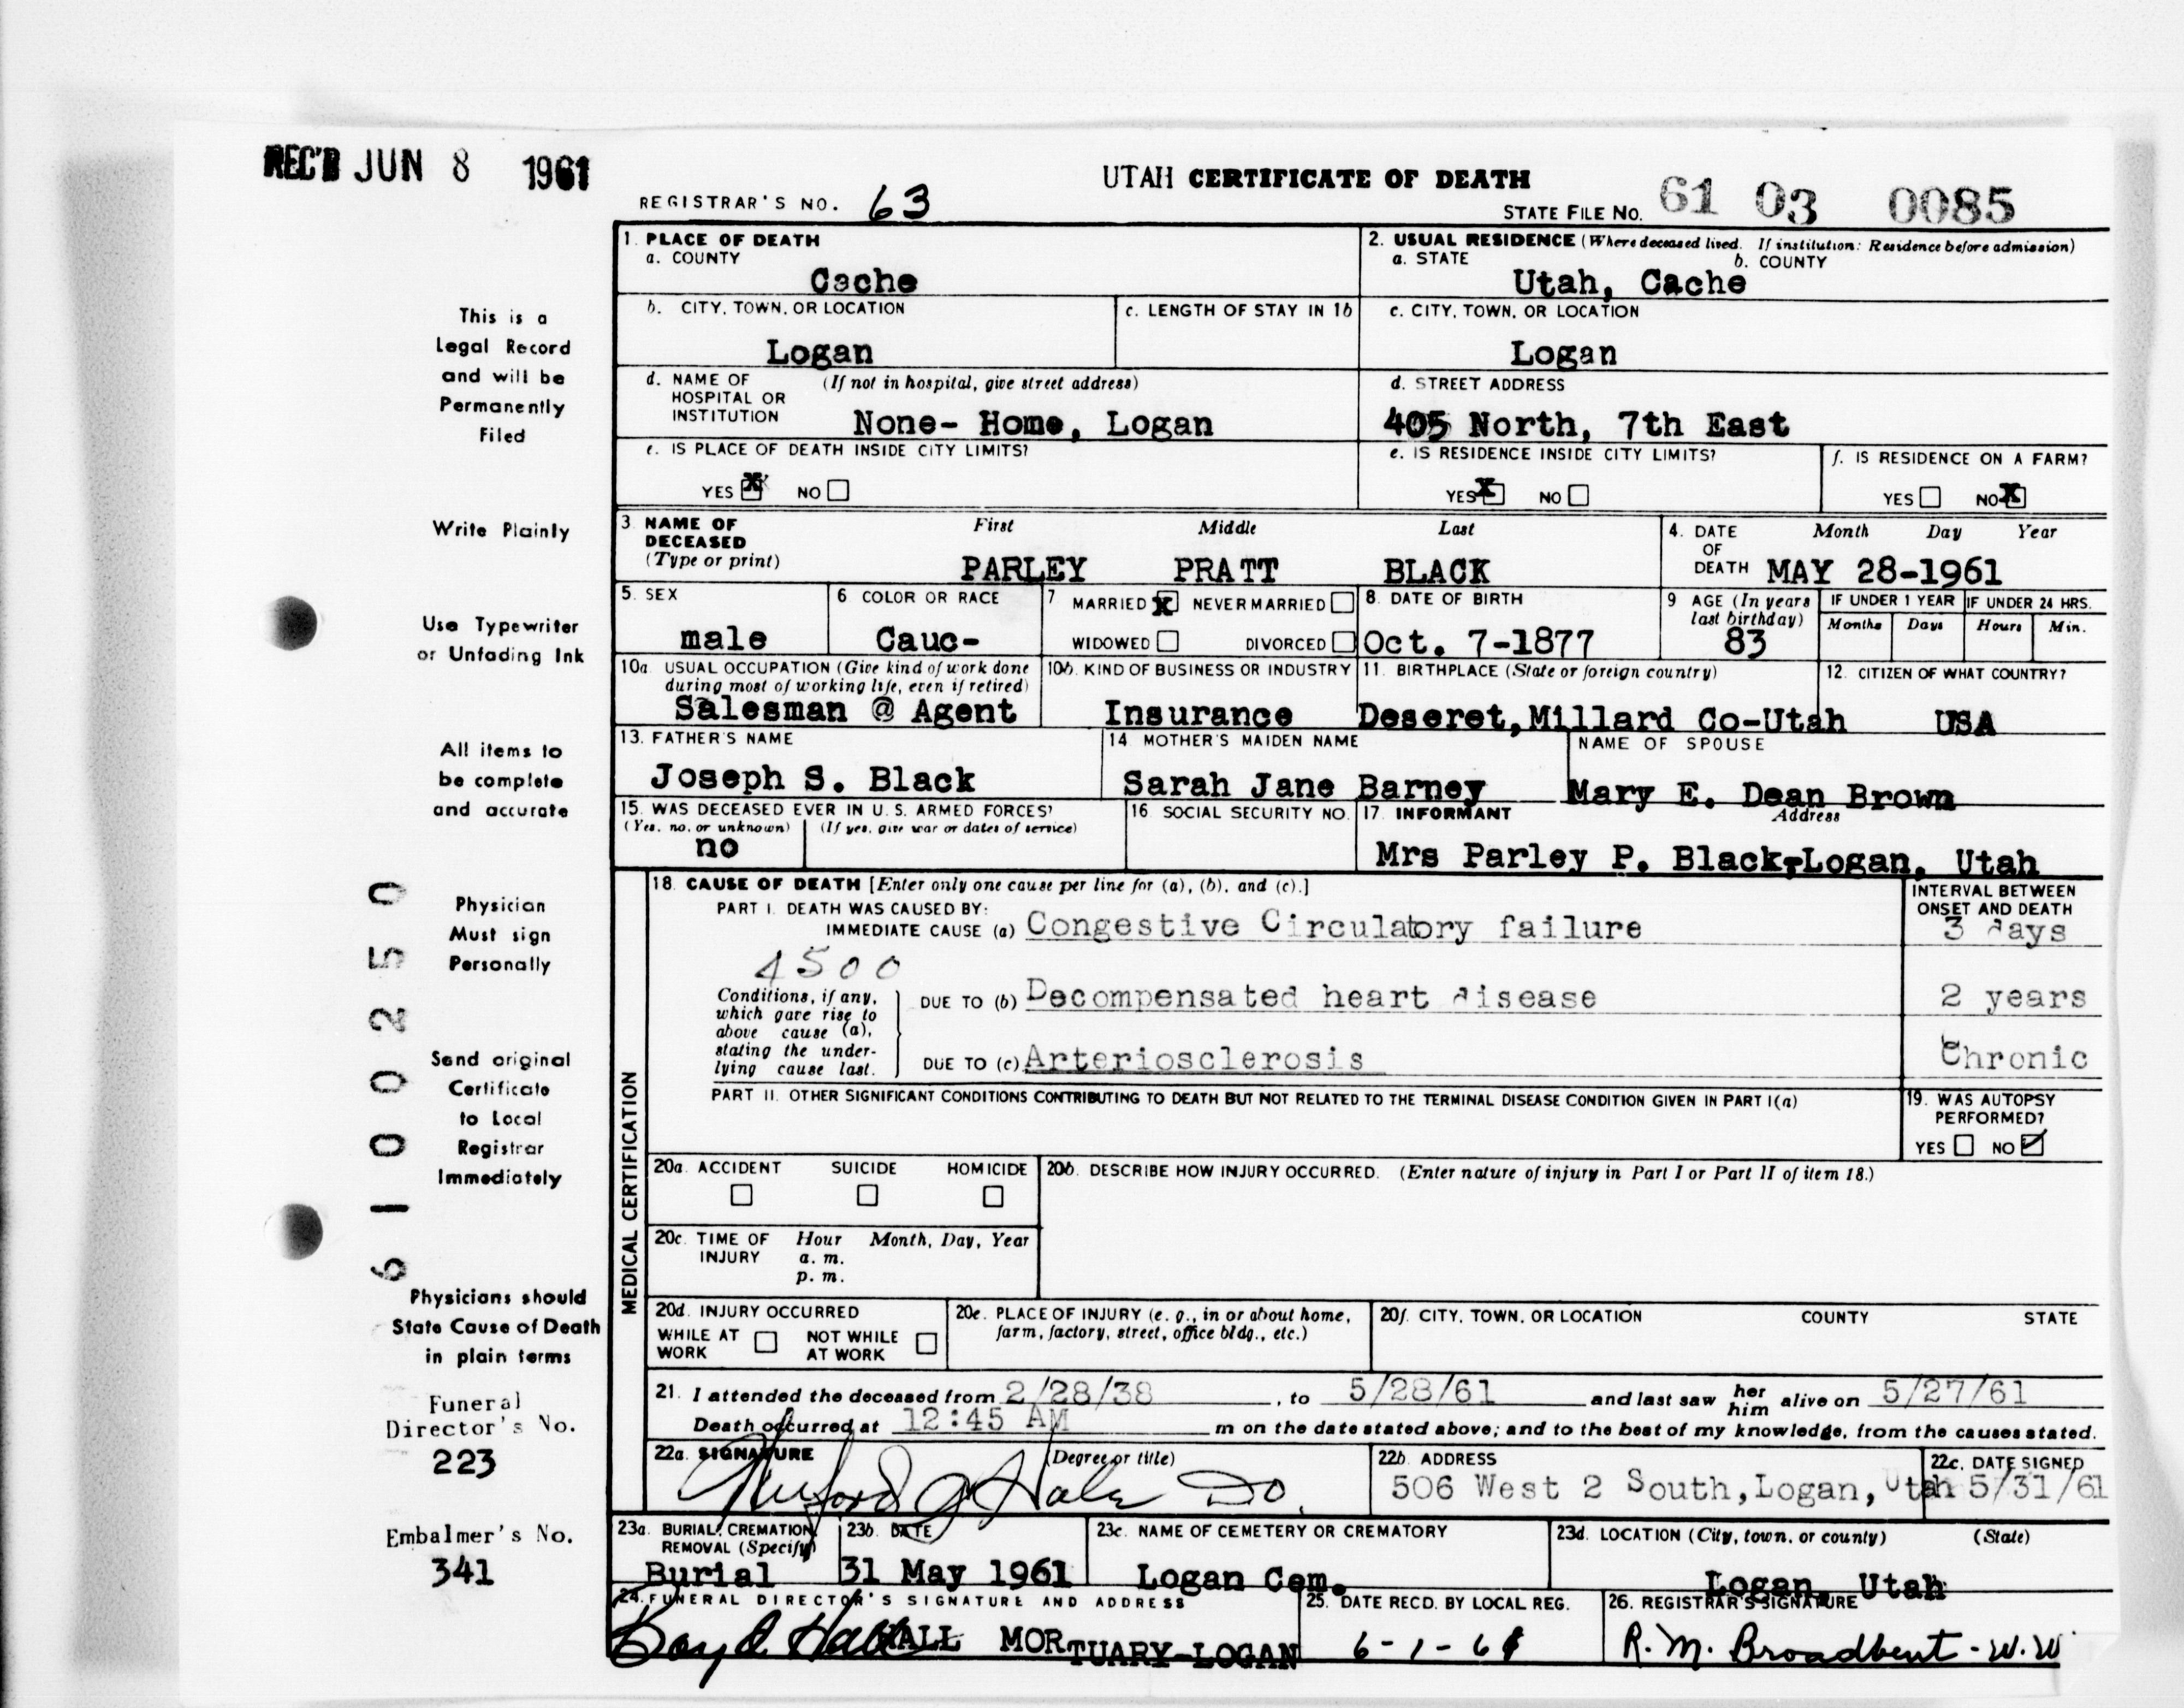 REC'D JUN 8 1961
UTAH CERTIFICATE OF DEATH
REGISTRAR'S NO. 63
STATE FILE NO. 61 03 0085
1. PLACE OF DEATH
a. COUNTY
Cache
2. USUAL RESIDENCE (Where deceased lived. If institution: Residence before admission)
a. STATE b. COUNTY
Utah, Cache
b. CITY, TOWN, OR LOCATION
Logan
c. LENGTH OF STAY IN 1b
c. CITY, TOWN, OR LOCATION
Logan
d. NAME OF HOSPITAL OR INSTITUTION (If not in hospital, give street address)
None- Home, Logan
d. STREET ADDRESS
405 North, 7th East
e. IS PLACE OF DEATH INSIDE CITY LIMITS?
YES X NO
e. IS RESIDENCE INSIDE CITY LIMITS?
YES X NO
f. IS RESIDENCE ON A FARM?
YES NO X
3. NAME OF DECEASED (Type or print)
First Middle Last
PARLEY PRATT BLACK
4. DATE OF DEATH Month Day Year
MAY 28-1961
5. SEX
male
6 COLOR OR RACE
Cauc-
7 MARRIED X NEVER MARRIED
WIDOWED DIVORCED
8. DATE OF BIRTH
Oct. 7-1877
9 AGE (In years last birthday)
83
IF UNDER 1 YEAR
Months Days
IF UNDER 24 HRS.
Hours Min.
10a. USUAL OCCUPATION (Give kind of work done during most of working life, even if retired)
Salesman @ Agent
10b. KIND OF BUSINESS OR INDUSTRY
Insurance
11. BIRTHPLACE (State or foreign country)
Deseret, Millard Co-Utah
12. CITIZEN OF WHAT COUNTRY?
USA
13. FATHER'S NAME
Joseph S. Black
14. MOTHER'S MAIDEN NAME
Sarah Jane Barney
NAME OF SPOUSE
Mary E. Dean Brown
15. WAS DECEASED EVER IN U. S. ARMED FORCES?
(Yes, no, or unknown) (If yes, give war or dates of service)
no
16. SOCIAL SECURITY NO.
17. INFORMANT Address
Mrs Parley P. Black-Logan, Utah
MEDICAL CERTIFICATION
18. CAUSE OF DEATH [Enter only one cause per line for (a), (b), and (c).]
INTERVAL BETWEEN ONSET AND DEATH
PART I. DEATH WAS CAUSED BY:
IMMEDIATE CAUSE (a) Congestive Circulatory failure 3 days
4500
Conditions, if any, which gave rise to above cause (a), stating the underlying cause last.
DUE TO (b) Decompensated heart disease 2 years
DUE TO (c) Arteriosclerosis Chronic
PART II. OTHER SIGNIFICANT CONDITIONS CONTRIBUTING TO DEATH BUT NOT RELATED TO THE TERMINAL DISEASE CONDITION GIVEN IN PART I(a)
19. WAS AUTOPSY PERFORMED?
YES NO ✓
20a. ACCIDENT SUICIDE HOMICIDE
20b. DESCRIBE HOW INJURY OCCURRED. (Enter nature of injury in Part I or Part II of item 18.)
20c. TIME OF INJURY Hour Month, Day, Year
a. m.
p. m.
20d. INJURY OCCURRED
WHILE AT WORK NOT WHILE AT WORK
20e. PLACE OF INJURY (e. g., in or about home, farm, factory, street, office bldg., etc.)
20f. CITY, TOWN, OR LOCATION COUNTY STATE
21. I attended the deceased from 2/28/38, to 5/28/61 and last saw her him alive on 5/27/61
Death occurred at 12:45 AM m on the date stated above; and to the best of my knowledge, from the causes stated.
22a. SIGNATURE (Degree or title)
Hale DO.
22b. ADDRESS
506 West 2 South, Logan, Utah
22c. DATE SIGNED
5/31/61
23a. BURIAL, CREMATION, REMOVAL (Specify)
Burial
23b. DATE
31 May 1961
23c. NAME OF CEMETERY OR CREMATORY
Logan Cem.
23d. LOCATION (City, town, or county) (State)
Logan, Utah
24. FUNERAL DIRECTOR'S SIGNATURE AND ADDRESS
HALL MORTUARY-LOGAN
25. DATE RECD. BY LOCAL REG.
6-1-61
26. REGISTRAR'S SIGNATURE
R. M. Broadbent - W.W
This is a
Legal Record
and will be
Permanently
Filed
Write Plainly
Use Typewriter
or Unfading Ink
All items to
be complete
and accurate
Physician
Must sign
Personally
Send original
Certificate
to Local
Registrar
Immediately
Physicians should
State Cause of Death
in plain terms
Funeral
Director's No.
223
Embalmer's No.
341
6100250